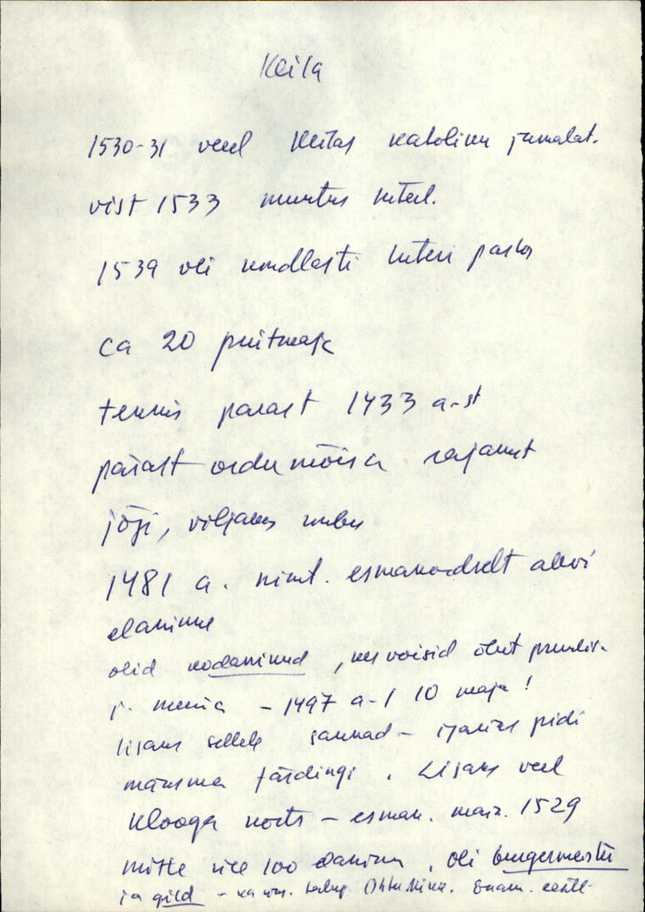 Keila
1530-31 veel Keilas katoliku jumalat.
vist 1533 muutus luterl.
1539 oli kindlasti luteri pastor
ca 20 puitmaja
tekkis pärast 1433 a-st
pärast ordumõisa rajamist
jõgi, viljakas ümbr
1481 a. nimt. esmakordselt alevi
elanikke
olid kodanikud, kes võisid õlut pruulida
j. müüa - 1497 a-l 10 maja!
lisaks sellele saunad - igaüks pidi
maksma färdingi. Lisaks veel
Klooga kõrts - esmak. main. 1529
mitte üle 100 elaniku, oli bürgermeister
ja gild -